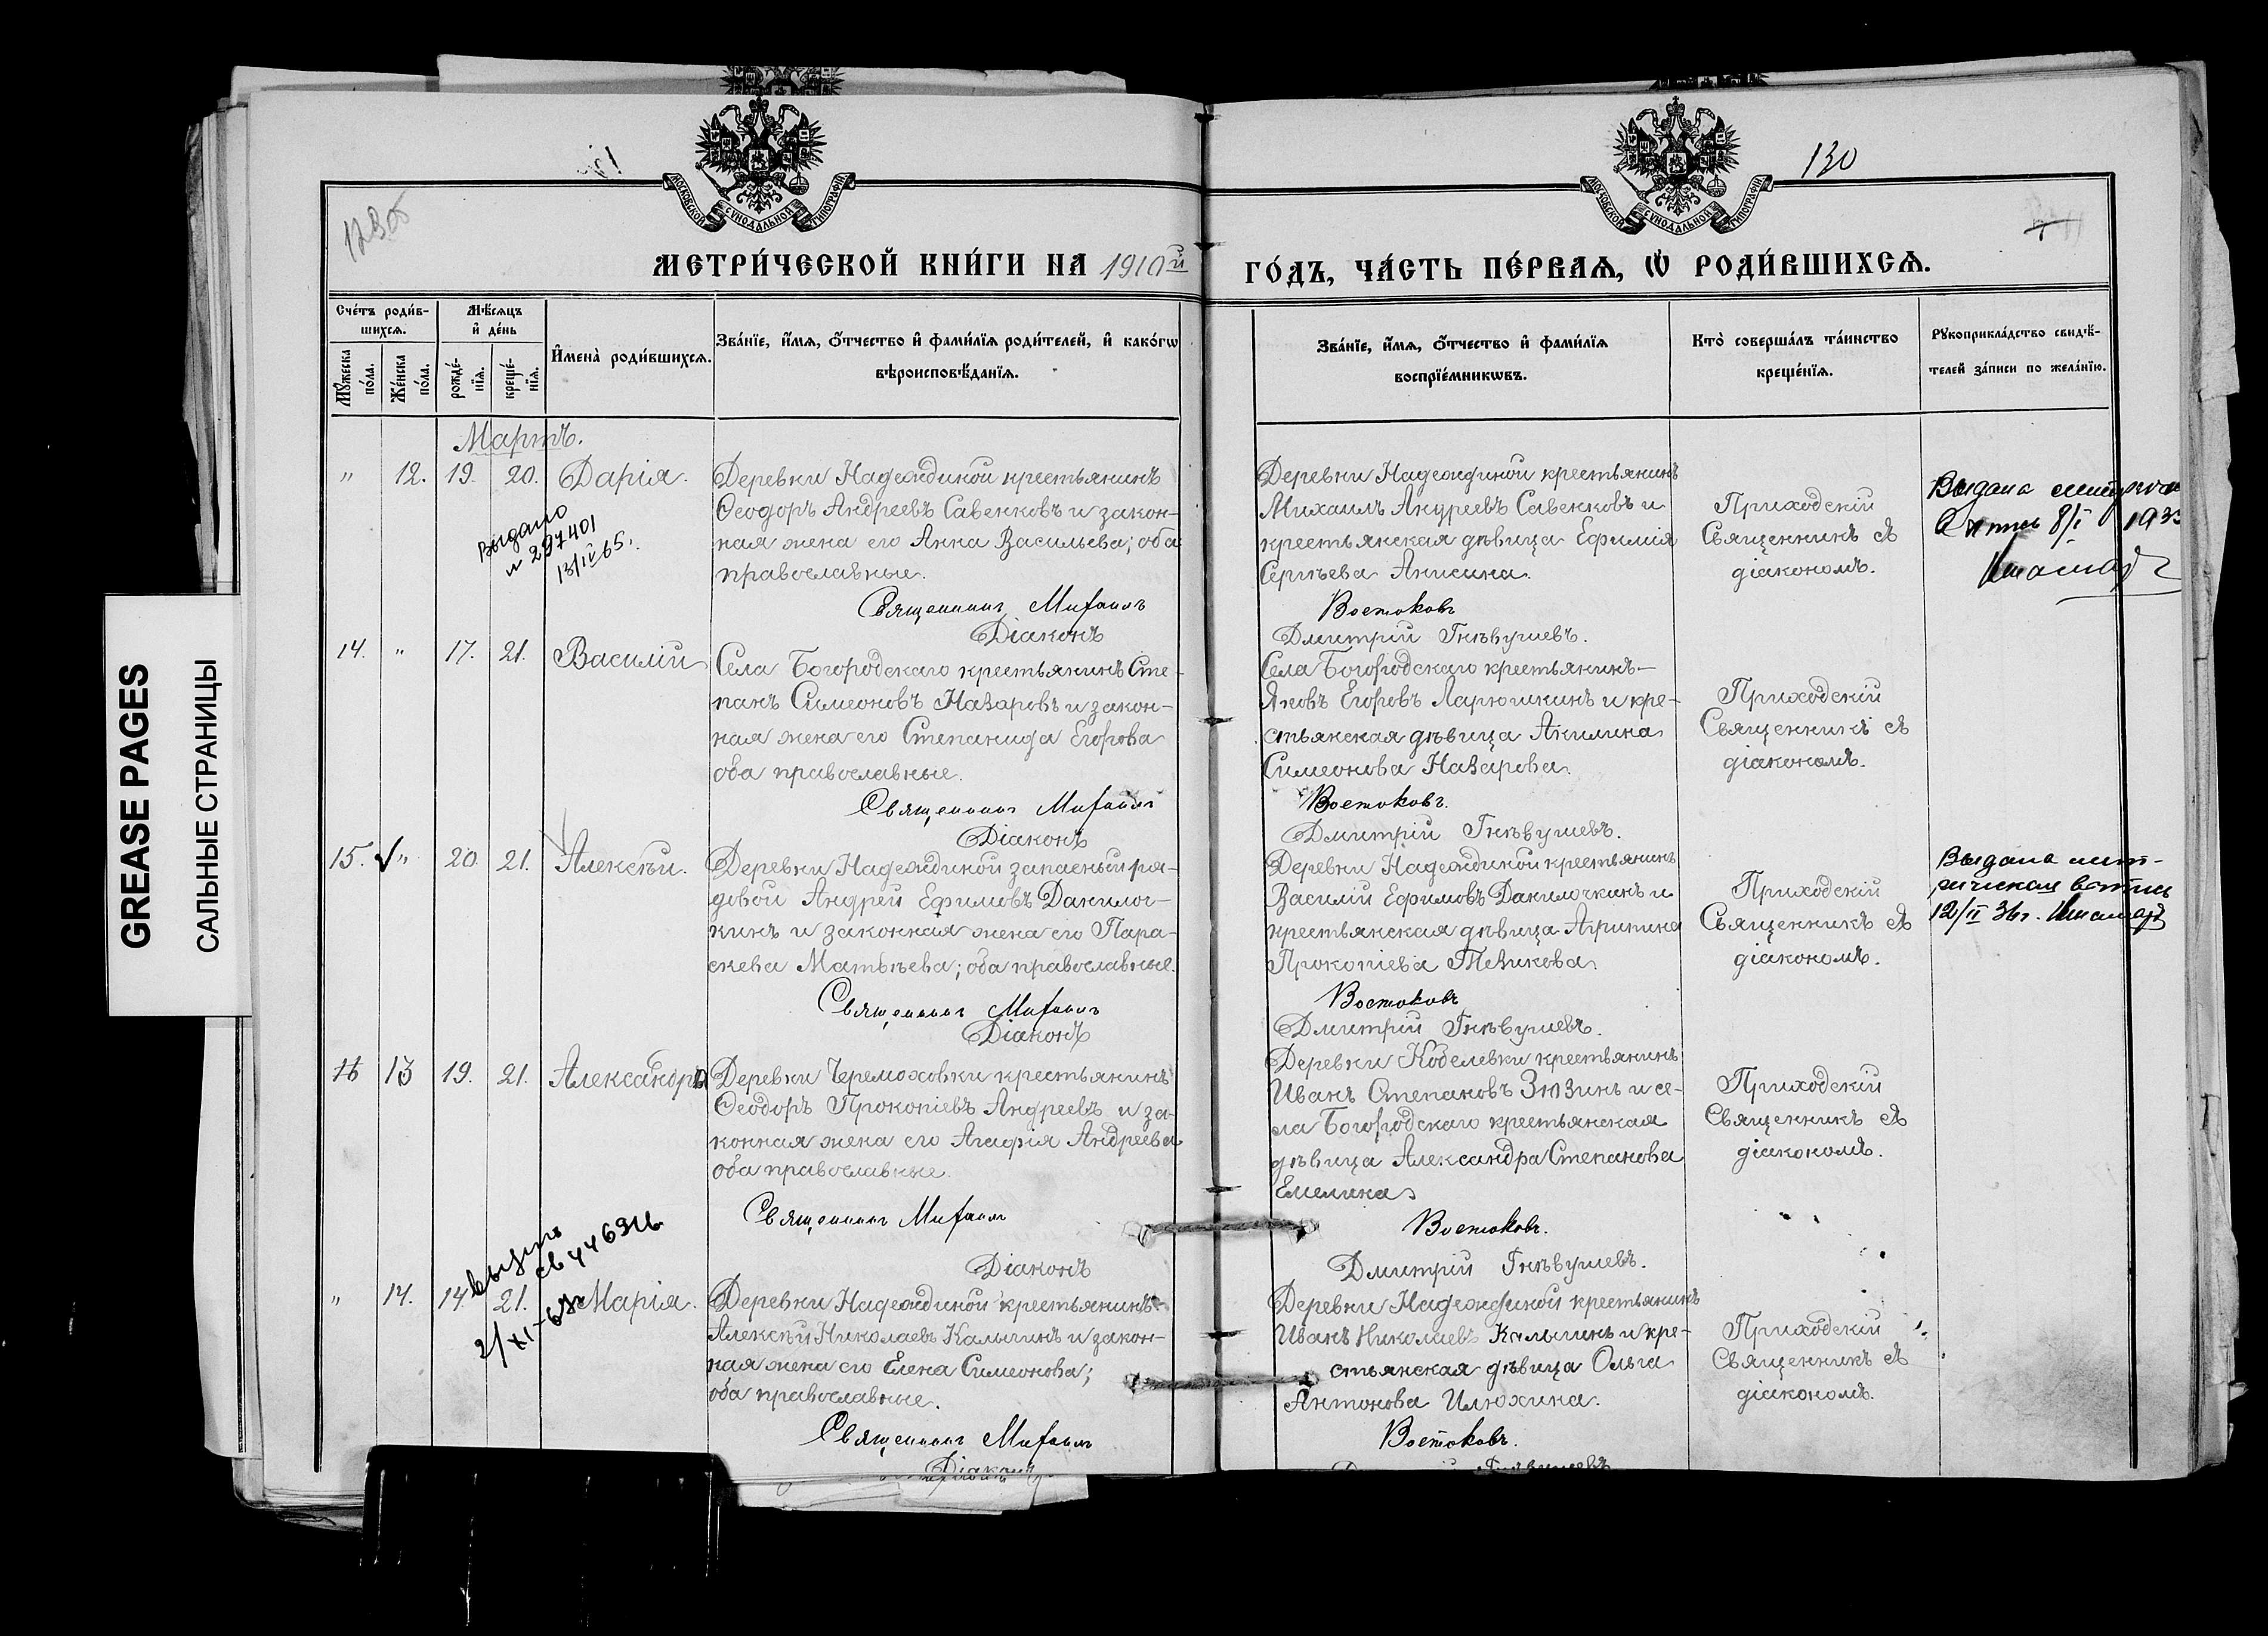 130
МОСКОВСКОЙ СУНОДАЛЬНОЙ ТИПОГРАФІИ
МОСКОВСКОЙ СУНОДАЛЬНОЙ ТИПОГРАФІИ
МЕТРИ́ЧЕСКОЙ КНИ́ГИ НА 1910й ГО́ДЪ, ЧА́СТЬ ПЕ́РВАѦ, Ѡ҆ РОДИ́ВШИХСѦ.
Сче́тъ роди́в-
шихсѧ.
Мѣ́сѧцъ
и҆ де́нь
Мꙋ́жеска по́ла.
Же́нска по́ла.
рожде́-
нїѧ.
креще́-
нїѧ.
И҆мена̀ роди́вшихсѧ.
Зва́нїе, и҆́мѧ, ѻ҆́тчество и҆ фами́лїѧ роди́телей, и҆ како́гѡ
вѣроисповѣ́данїѧ.
Зва́нїе, и҆́мѧ, ѻ҆́тчество и҆ фами́лїѧ
воспрїе́мникѡвъ.
Кто̀ соверша́лъ та́инство
креще́нїѧ.
Рꙋкоприкла́дство свидѣ́-
телей за́писи по жела́нїю.
Мартъ.
" 12. 19. 20. Дарія.
Выдано
№ 297401
13/IV 65.
Деревни Надеждиной крестьянинъ
Ѳеодоръ Андреевъ Савенковъ и закон-
ная жена его Анна Васильева; оба
православные.
Священникъ Михаилъ
Діаконъ
Деревни Надеждиной крестьянинъ
Михаилъ Андреевъ Савенковъ и
крестьянская дѣвица Ефимія
Сергѣева Анисина.
Востоковъ
Дмитрій Гнѣвушевъ.
Приходскій
Священникъ съ
діакономъ.
Выдана
8/I
14. " 17. 21. Василій
Села Богородскаго крестьянинъ Сте-
панъ Симеоновъ Назаровъ и закон-
ная жена его Степанида Егорова
оба православные.
Священникъ Михаилъ
Діаконъ
Села Богородскаго крестьянинъ
Яковъ Егоровъ Ларюшкинъ и кре-
стьянская дѣвица Акилина
Симеонова Назарова.
Востоковъ.
Дмитрій Гнѣвушевъ.
Приходскій
Священникъ съ
діакономъ.
15. " 20. 21. Алексѣй.
Деревни Надеждиной запасный ря-
довой Андрей Ефимовъ Данилоч-
кинъ и законная жена его Пара-
скева Матвѣева; оба православные.
Священникъ Михаилъ
Діаконъ
Деревни Надеждиной крестьянинъ
Василій Ефимовъ Данилочкинъ и
крестьянская дѣвица Агрипина
Прокопіева Тевикова.
Востоковъ
Дмитрій Гнѣвушевъ.
Приходскій
Священникъ съ
діакономъ.
Выдана мет-
рическая
12/II 36г.
16 13 19. 21. Александра
Деревни Черемоховки крестьянинъ
Ѳеодоръ Прокопіевъ Андреевъ и за-
конная жена его Агафія Андреева
оба православные.
Священникъ Михаилъ
Діаконъ
Деревни Кобелевки крестьянинъ
Иванъ Степановъ Зюзинъ и се-
ла Богородскаго крестьянская
дѣвица Александра Степанова
Емелина
Востоковъ.
Дмитрій Гнѣвушевъ.
Приходскій
Священникъ съ
діакономъ.
" 14. 14. 21. Марія.
Деревни Надеждиной крестьянинъ
Алексѣй Николаевъ Калыгинъ и закон-
ная жена его Елена Симеонова;
оба православные.
Священникъ Михаилъ
Діаконъ
Деревни Надеждиной крестьянинъ
Иванъ Николаевъ Калыгинъ и кре-
стьянская дѣвица Ольга
Антонова Илюхина.
Востоковъ.
Приходскій
Священникъ съ
діакономъ.
GREASE PAGES
САЛЬНЫЕ СТРАНИЦЫ